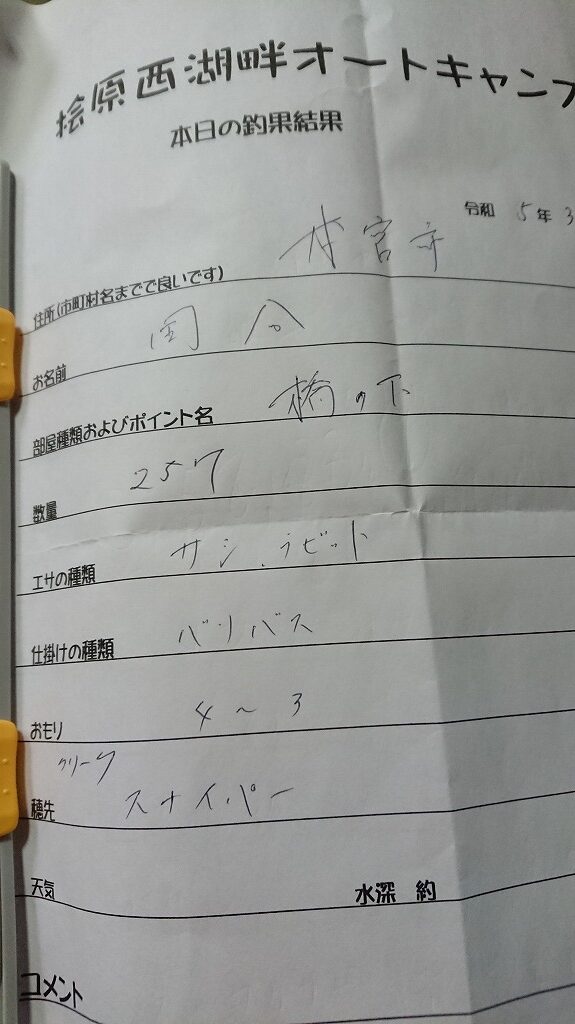 桧原西湖畔オートキャンプ
本日の釣果結果
令和 5年 3
住所(市町村名までで良いです) 本宮市
お名前 国分
部屋種類およびポイント名 橋の下
数量 257
エサの種類 サシ.ラビット
仕掛けの種類 バリバス
おもり 4～3
クリーク
穂先 スナイパー
天気 水深 約
コメント